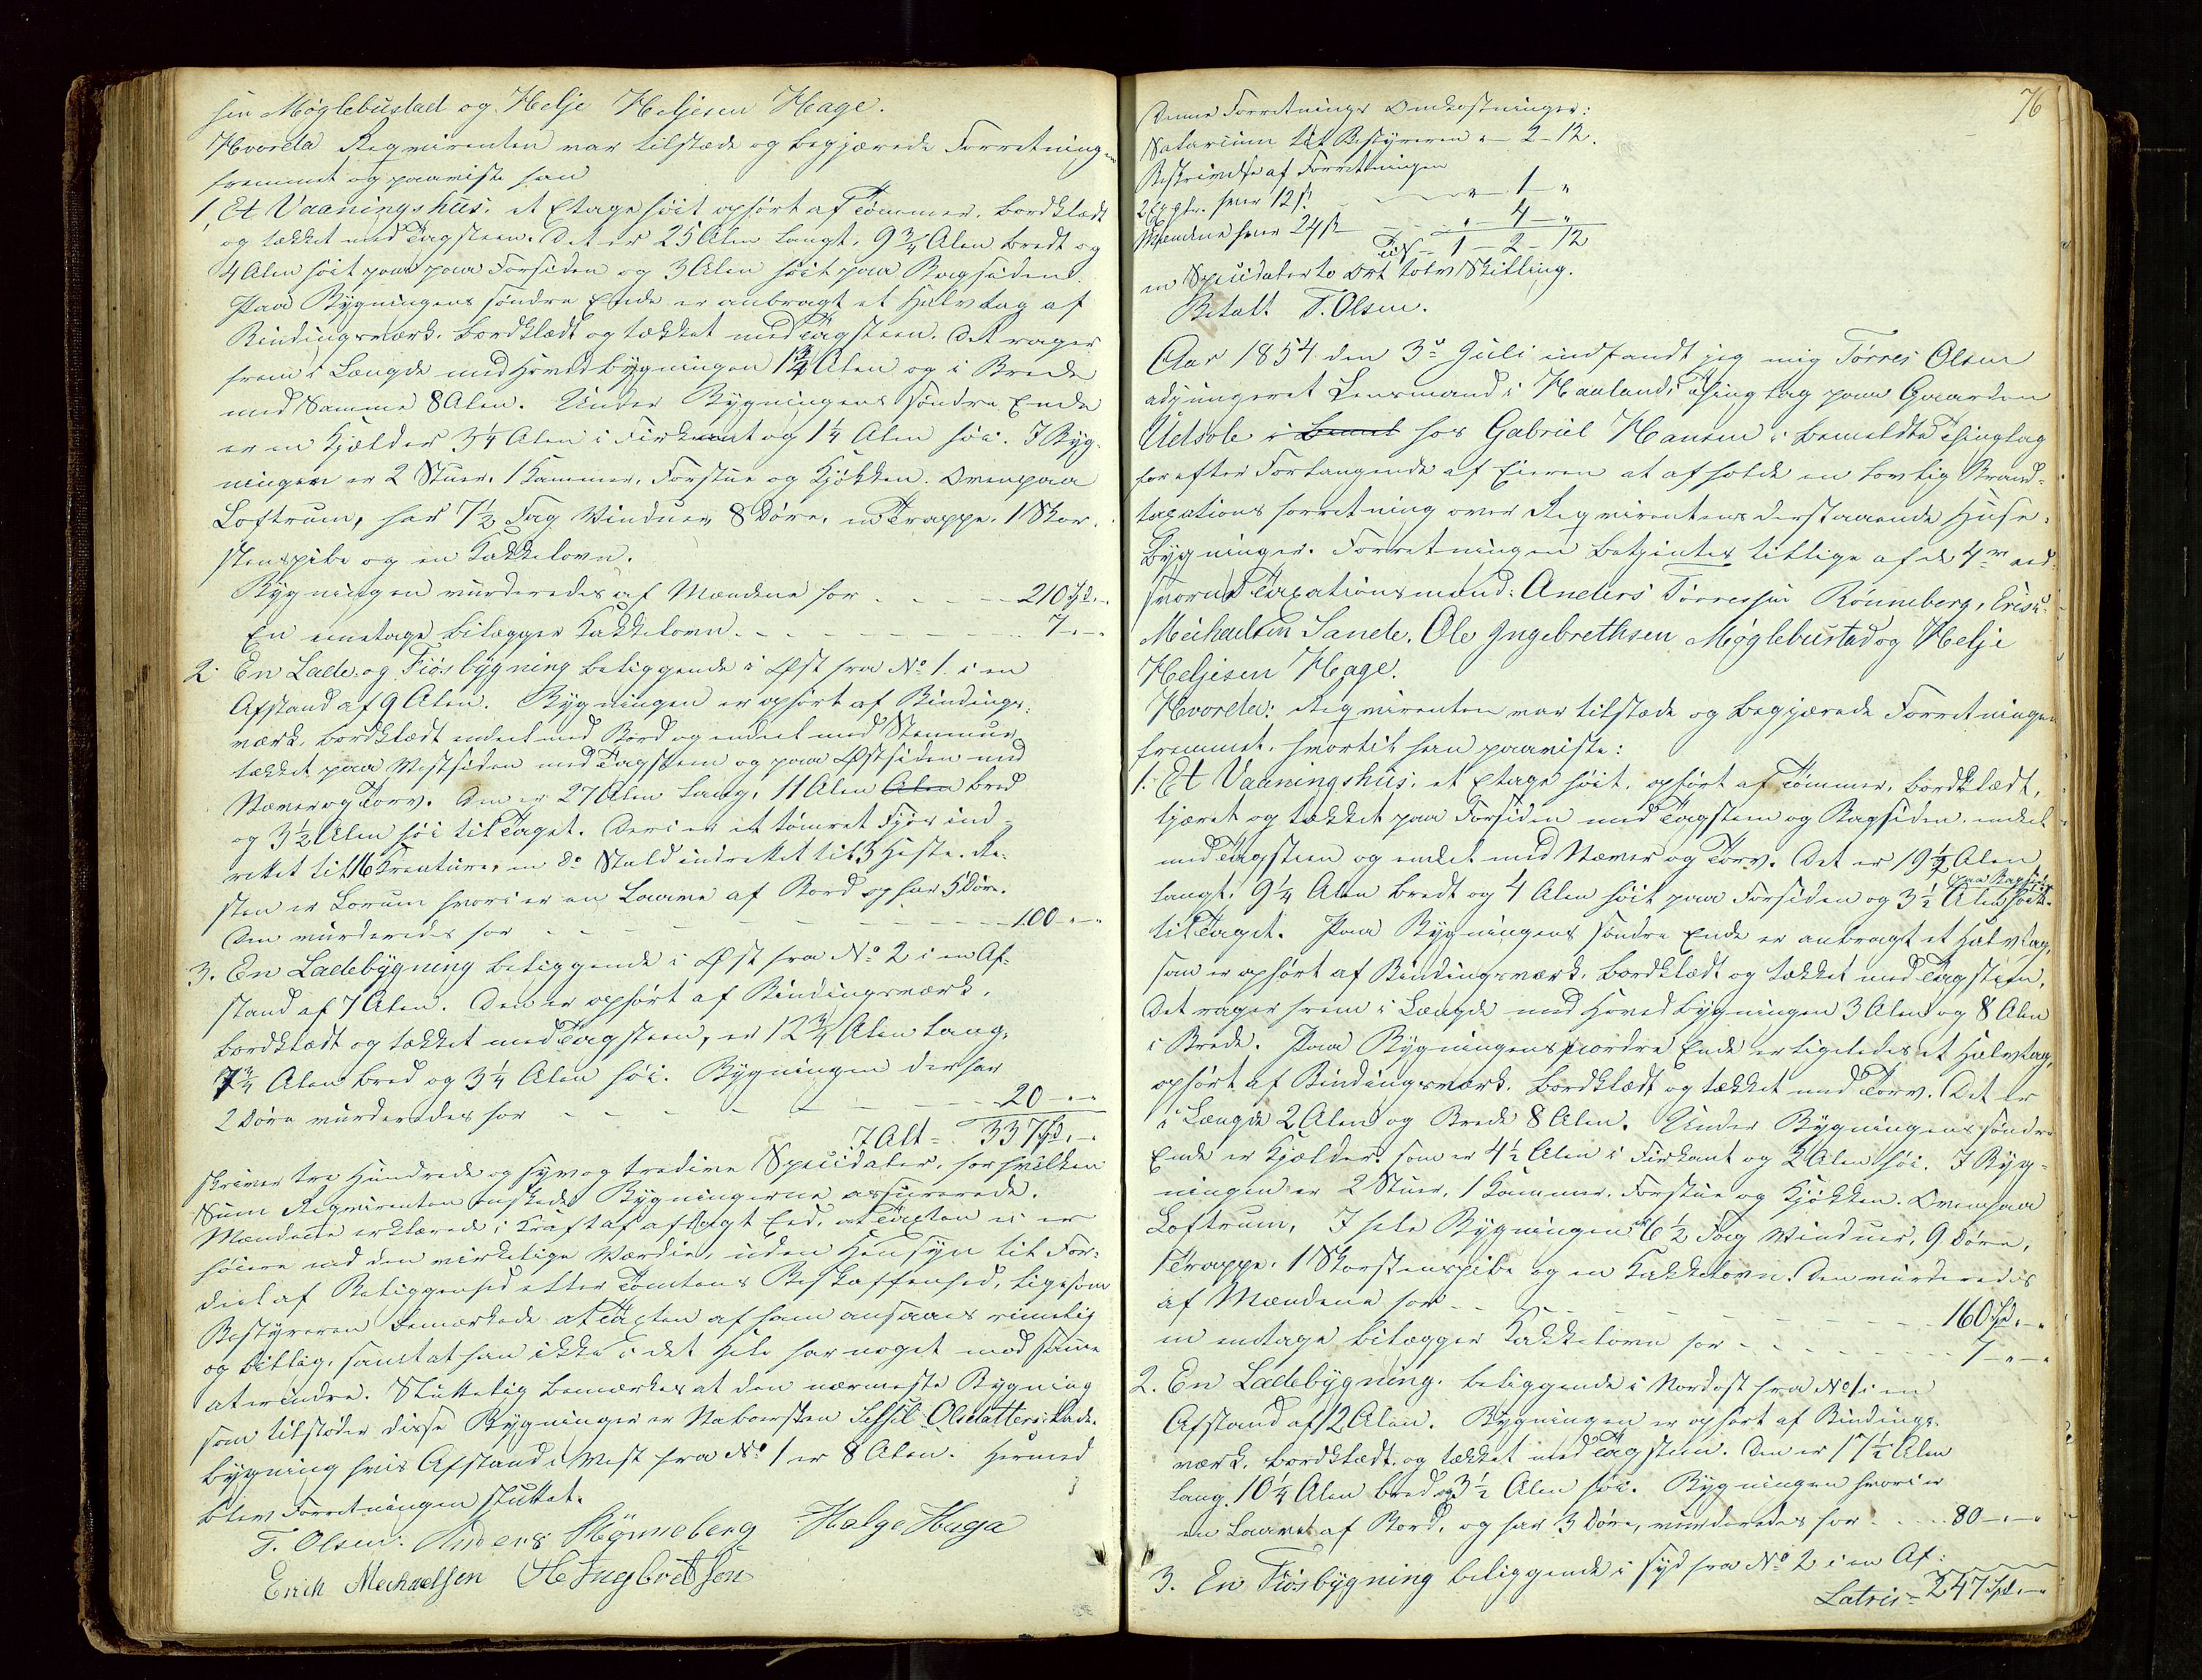 sen Møglebustad og Helje Heljesen Hage.
Hvorda Reqvirenten var tilstæde og begjærede Forretningen
fremmet og paaviste han
1, Et Vaaningshus, et Etage høit opført af Tømmer, bordklædt
og tækket med Tagsteen. Det er 25 Alen langt, 9 3/4 Alen bredt og
4 Alen høit paa Forsiden og 3 Alen høit paa Bagsiden.
Paa Bygningens søndre Ende er anbragt et Halvtag af
Bindingsværk, bordklædt og tækket med Tagsteen. Det rager
frem i Længde med Hovedbygningen Alen og i Brede
med Samme 8 Alen. Under Bygningens søndre Ende
er en Kjælder 3 1/4 Alen i Firkant og 1 1/4 Alen høi. I Byg-
ningen er 2 Stuer, 1 Kammer, Forstue og Kjøkken. Ovenpaa
Loftrum, har 7 1/2 Fag Vinduer, 8 Døre, en Trappe, 1 Skor-
stenspibe og en Kakkelovn.
Bygningen vurderedes af Mændene for - - - - 210 Spd. " - "
En eenetages bilægger Kakkelovn. - - - - 7 - " - "
2. En Lade- og Fiøsbygning beliggende i Øst fra No 1. i en
Afstand af 9 Alen. Bygningen er opført af Bindings-
værk, bordklædt endeel med Bord og endeel med Steenmur
tækket paa Vestsiden med Tagsteen og paa Østsiden med
Næver og Torv. Den er 27 Alen lang, 11 Alen Alen bred
og 3 1/2 Alen høi til Taget. Deri er et tømret Fjøs ind-
rettet til 16 Kreature, en do Stald indrettet til 3 Heste. Re-
sten er Lorum hvori er en Laave af Bord og har 5 Døre.
Den vurderedes for - - - - 100 - " - "
3. En Ladebygning beliggende i Øst fra No 2 i en Af-
stand af 7 Alen. Den er opført af Bindingsværk,
bordklædt og tækket med Tagsteen, er 12 3/4 Alen lang,
7 3/4 Alen bred og 3 1/4 Alen høi. Bygningen der har
2 Døre vurderedes for - - - - 20 - " - "
I Alt = 337 Spd. " - "
skriver tre Hundrede og syv og tredive Speciedaler, for hvilken
Sum Reqvirenten ønskede Bygningerne assurerede.
Mændene erklærede i Kraft af aflagt Eed, at Taxten ei er
høiere end den virkelige Værdie, uden Hensyn til For-
deel af Beliggenhed eller Tomtens Beskaffenhed, ligesom
Bestyreren bemærkede at Taxten af ham ansaaes rimelig
og billig, samt at han ikke i det Hele har noget mod samme
at erindre. Sluttelig bemærkes at den nærmeste Bygning
som tilstøder disse Bygninger er Naboersken Olsdatters Lade-
bygning hvis Afstand i Vest fra No 1 er 8 Alen. Hermed
blev Forretningen sluttet.
T. Olsen. Anders Rønneberg Helge Haga
Erich Mechaelsen Ole Ingbretsen
76
Denne Forretnings Omkostninger:
Salarium til Bestyreren " - 2 - 12.
Beskrivelse af Forretningen
2 Expl. hver 12 ß - - - " - 1 - "
Mændene hver 24 ß - - - " - 4 - "
Spd - 1 - 2 - 12
en Speciedaler to Ort tolv Skilling.
Betalt T. Olsen.
Aar 1854 den 3die Juli indfandt jeg mig Tørres Olsen
adjungeret Lensmand i Haalands Thinglag paa Gaarden
Utsole i hos Gabriel Hansen i bemeldte Thinglag
for efter Forlangende af Eieren at afholde en lovlig Brand-
taxations forretning over Reqvirentens derstaaende Huse-
Bygninger. Forretningen betjentes tillige af de 4re eed-
svorne Taxationsmænd: Anders Tørressen Rønneberg, Erich
Meichaelsen Sande, Ole Ingebrethsen Møglebustad og Helje
Heljesen Hage.
Hvorda: Reqvirenten var tilstæde og begjærede Forretningen
fremmet, hvortil han paaviste:
1. Et Vaaningshus, et Etage høit, opført af Tømmer, bordklædt,
tjæret og tækket paa Forsiden med Tagsteen og Bagsiden endeel
med Tagsteen og endeel med Næver og Torv. Det er 19 1/2 Alen
langt, 9 1/4 Alen bredt og 4 Alen høit paa Forsiden og 3 1/2 Alen høit paa Bagsiden
til Taget. Paa Bygningens søndre Ende er anbragt et Halvtag,
som er opført af Bindingsværk, bordklædt og tækket med Tagsteen.
Det rager frem i Længde med Hovedbygningen 3 Alen og 8 Alen
i Brede. Paa Bygningens nordre Ende er ligeledes et Halvtag,
opført af Bindingsværk, bordklædt og tækket med Torv. Det er
i Længde 2 Alen og Brede 8 Alen. Under Bygningens søndre
Ende er Kjælder, som er 4 1/2 Alen i Firkant og 2 Alen høi. I Byg-
ningen er 2 Stuer, 1 Kammer, Forstue og Kjøkken. Ovenpaa
Loftrum, I hele Bygningen er 6 1/2 Fag Vinduer, 9 Døre,
1 Trappe, 1 Skorstenspibe og en Kakkelovn. Den vurderedes
af Mændene for - - - - 160 Spd. " - "
en eenetages bilægger Kakkelovn for - - - - 7 - " - "
2. En Ladebygning, beliggende i Nordost fra No 1. i en
Afstand af 12 Alen. Bygningen er opført af Bindings-
værk, bordklædt, og tækket med Tagsteen. Den er 17 1/2 Alen
lang, 10 1/4 Alen bred og 3 1/2 Alen høi. Bygningen hvori er
en Laave af Bord, og har 3 Døre, vurderedes for - - - 80 - " - "
3. En Fiøsbygning beliggende i Syd fra No 2 i en Af-
Lateris = 247 Spd. " - "